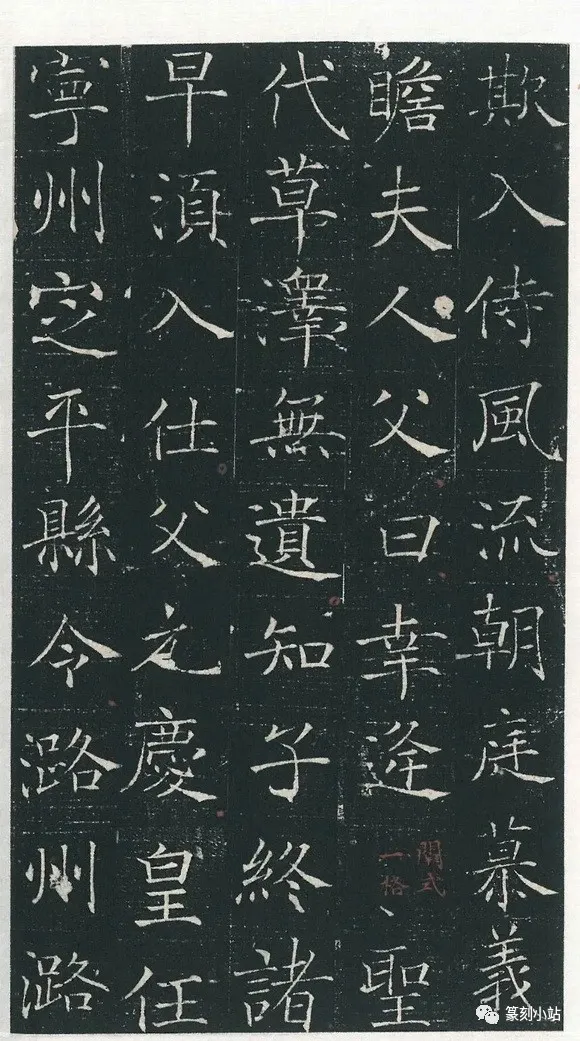 欺入侍風流朝庭慕義
瞻夫人父曰幸逢聖
闕式
一格
代草澤無遺知子終諸
早須入仕父之慶皇任
寧州定平縣令潞州潞
篆刻小站